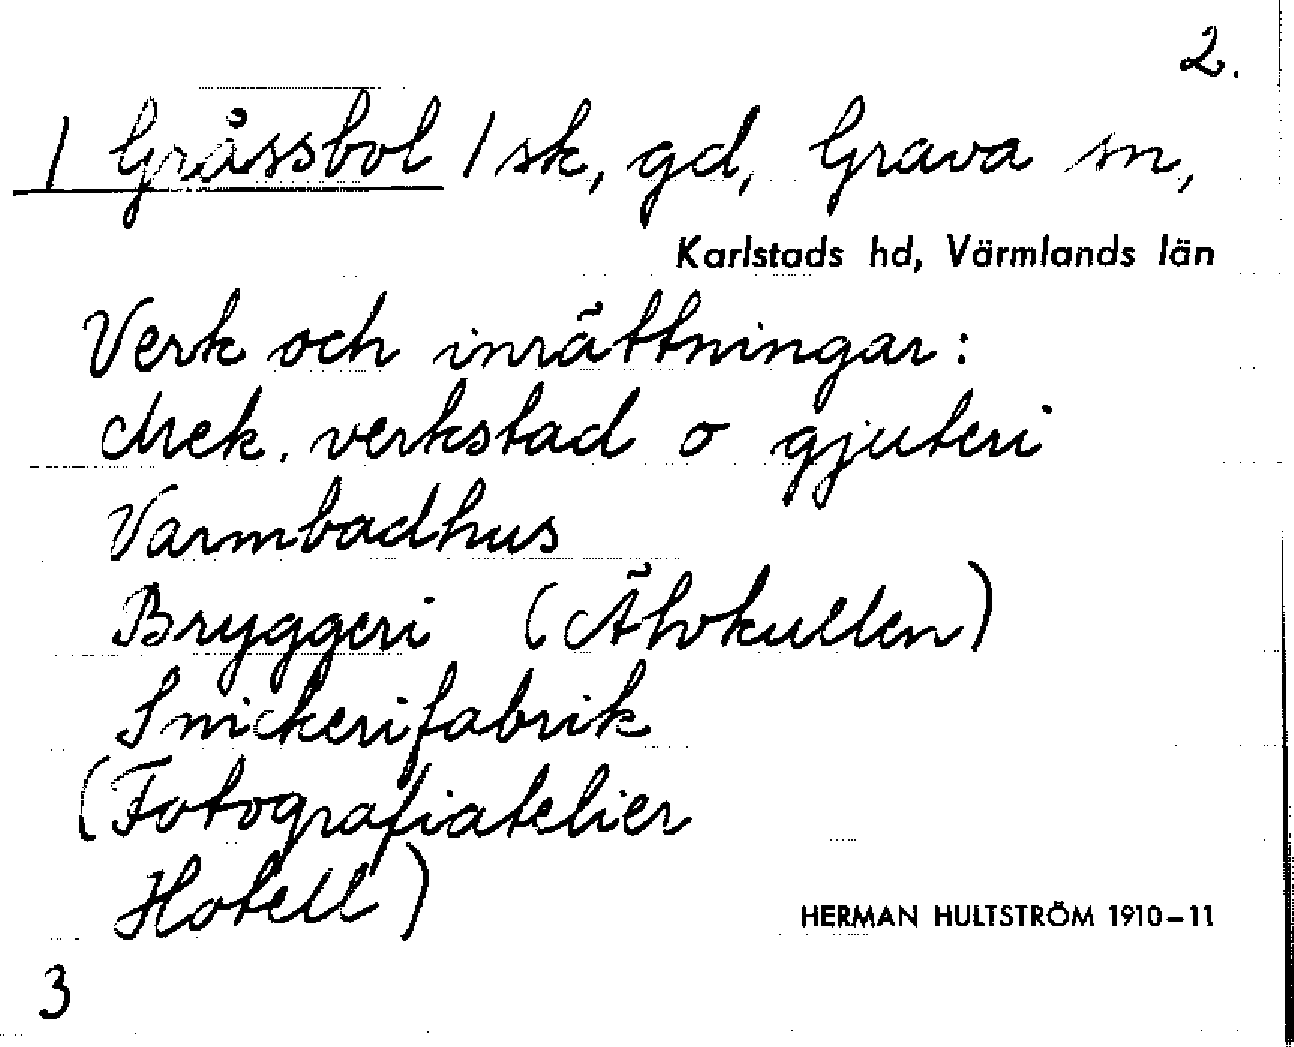 2.
/ Gråssbol / sk, gd, Grava sn,
Karlstads hd, Värmlands län
Verk och inrättningar:
Mek. verkstad o gjuteri
Varmbadhus
Bryggeri (Älvkullen)
Snickerifabrik
(Fotografiatelier
Hotell)
HERMAN HULTSTRÖM 1910–11
3